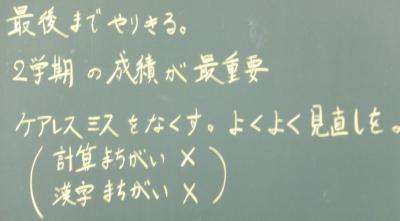 最後までやりきる。
2学期の成績が最重要
ケアレスミスをなくす。よくよく見直しを。
(計算まちがい ×
漢字まちがい ×)